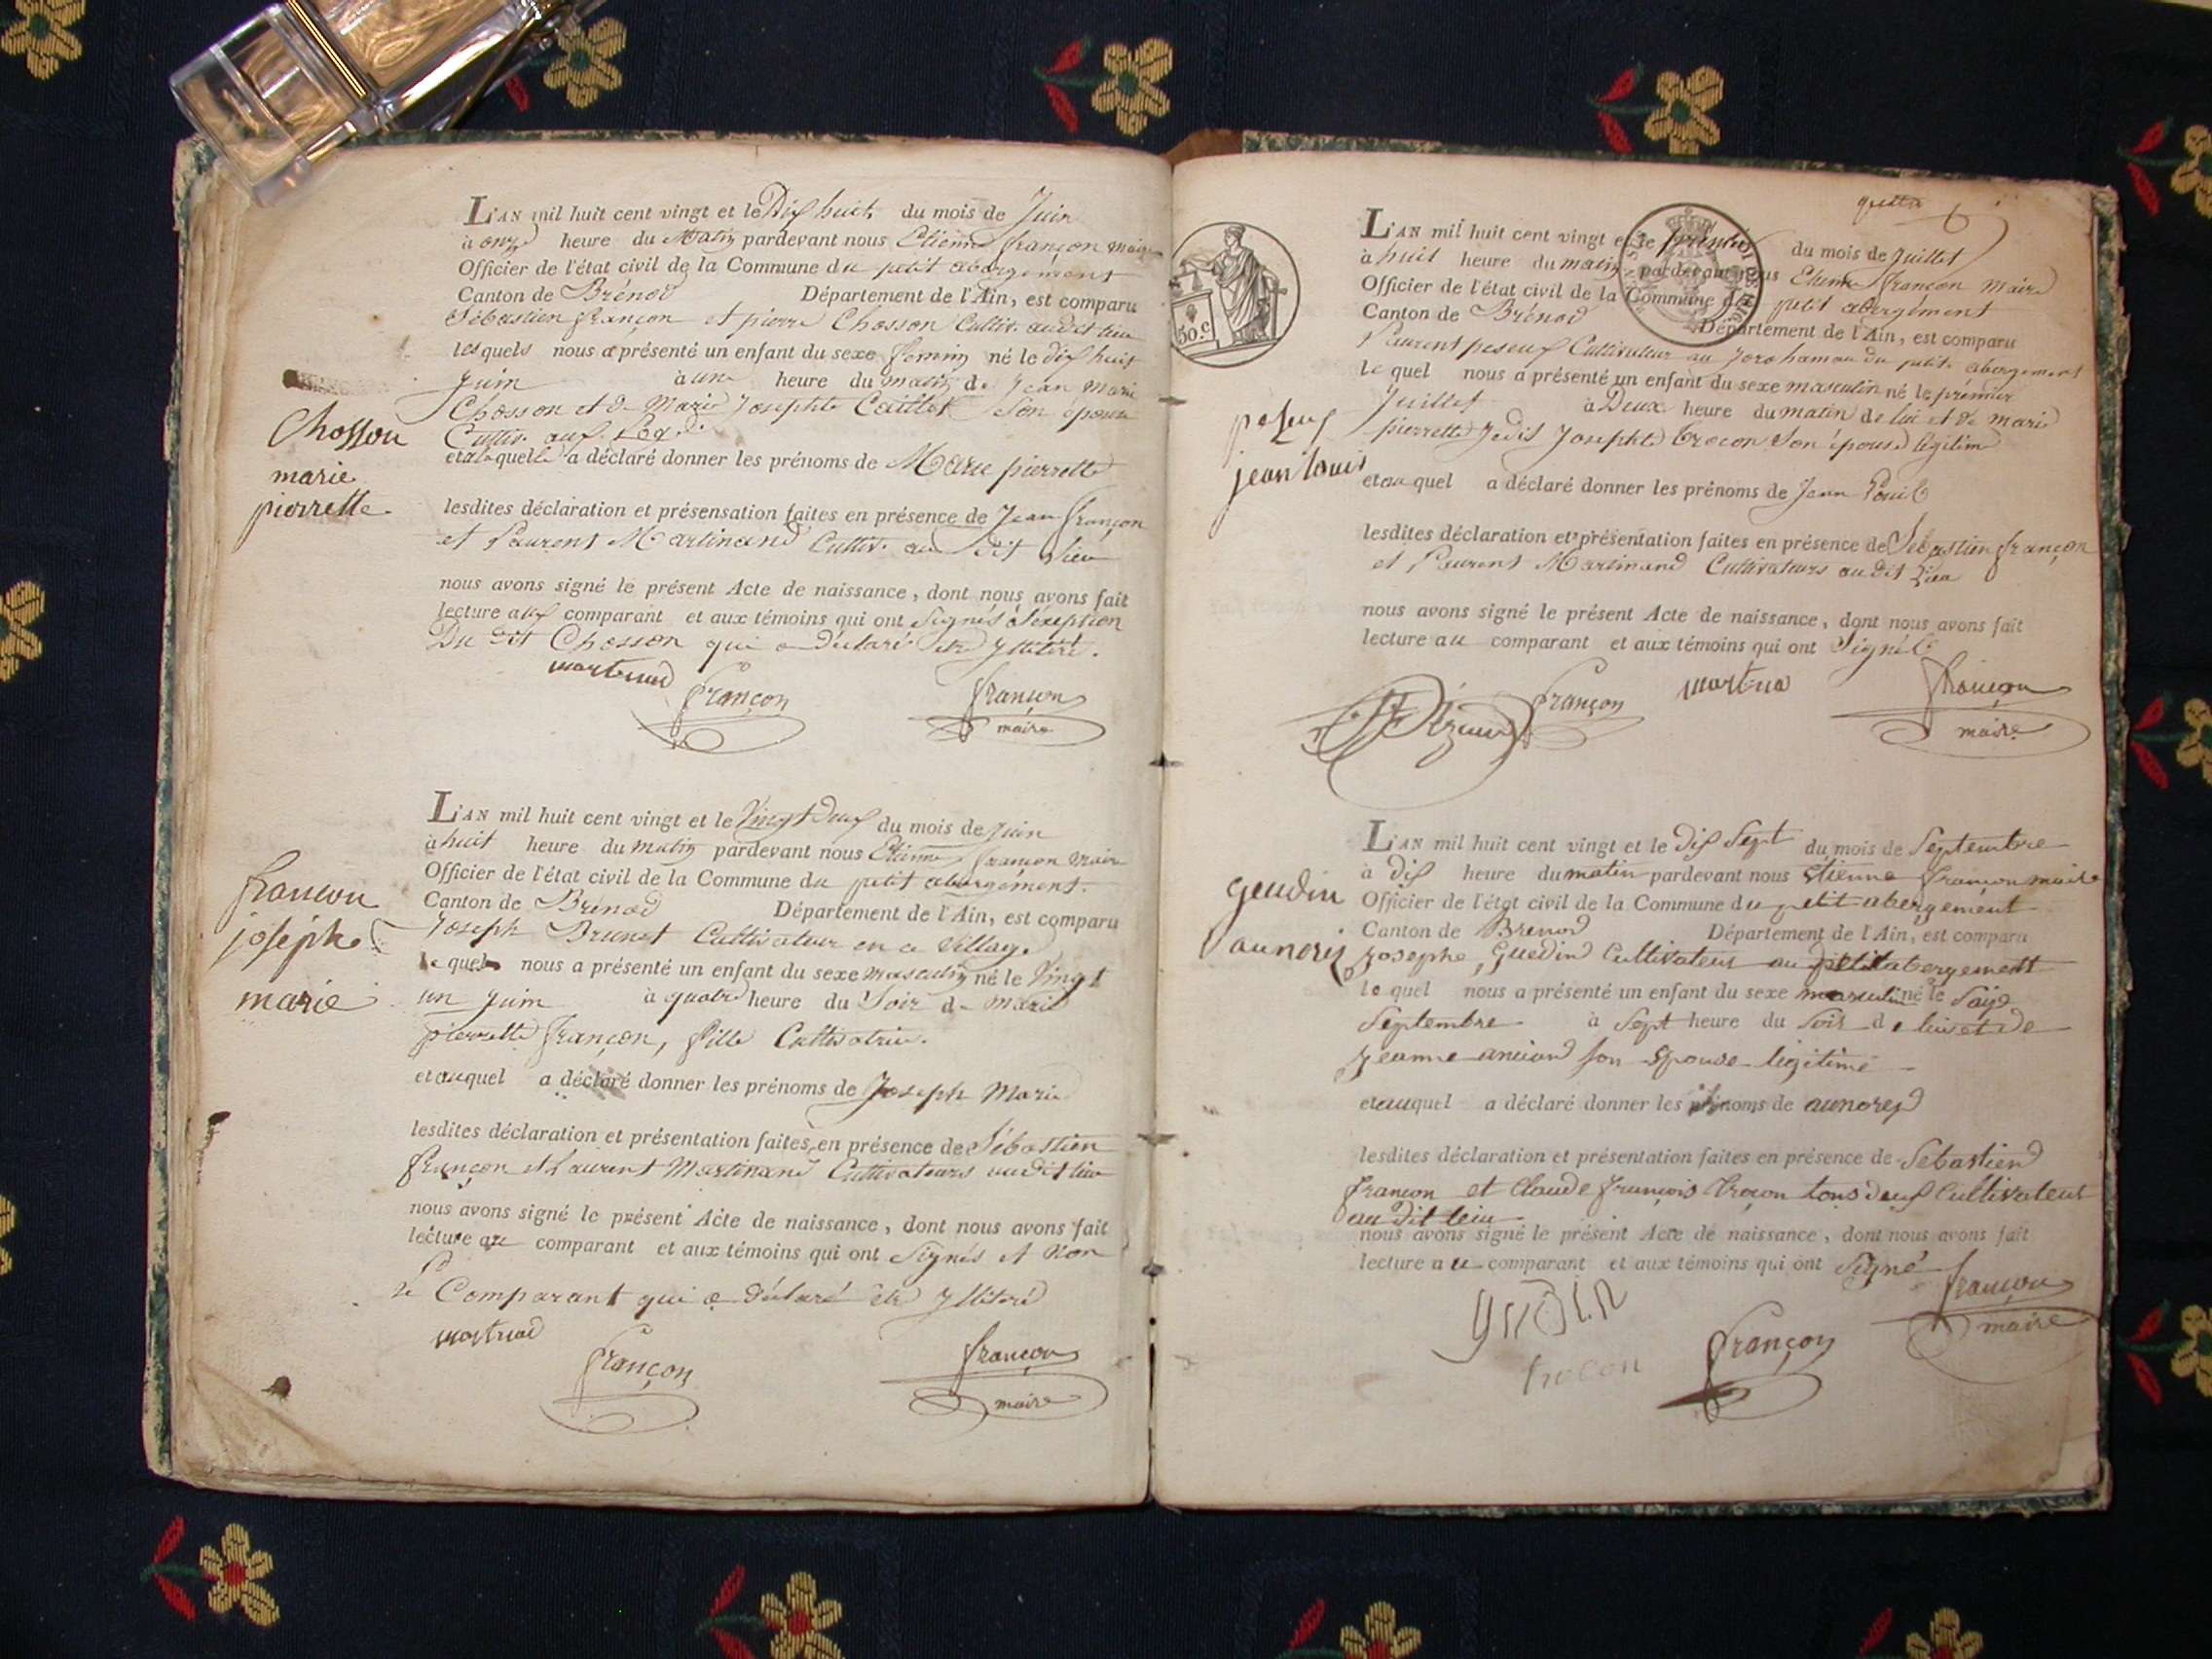 L'AN mil huit cent vingt et le Dix huit du mois de Juin
à onze heure du Matin pardevant nous Etienne françon maire
Officier de l'état civil de la Commune du petit abergement
Canton de Brénod Département de l'Ain, est comparu
Sébastien françon et pierre Chosson Cultiv. audit lieu
lesquels nous a présenté un enfant du sexe feminin né le dix huit
Juin à une heure du matin de Jean Marie
Chosson et de Marie Josephte Son épouse
Cultiv. aux
et a laquelle a déclaré donner les prénoms de Marie pierrette
Chosson
marie
pierrette
lesdites déclaration et présensation faites en présence de Jean françon
et Laurent Martinand Cultiv. au dit Lieu
nous avons signé le présent Acte de naissance, dont nous avons fait
lecture aux comparant et aux témoins qui ont Signés à Séxeption
Du dit Chosson qui a déclaré etre yllitéré.
martinad
françon
françon
maire
L'AN mil huit cent vingt et le Vingt Deux du mois de Juin
à huit heure du matin pardevant nous Etienne françon maire
Officier de l'état civil de la Commune du petit abergement.
Canton de Brénod Département de l'Ain, est comparu
Joseph Brunet Cultivateur en ce Village
le quel nous a présenté un enfant du sexe masculin né le Vingt
un Juin à quatre heure du Soir de marie
pierrette françon, fille Cultivatrice.
et auquel a déclaré donner les prénoms de Joseph Marie
françon
joseph
marie
lesdites déclaration et présentation faites en présence de Sébastien
françon et Laurent Martinand Cultivateurs audit lieu
nous avons signé le présent Acte de naissance, dont nous avons fait
lecture au comparant et aux témoins qui ont Signés et Non
le Comparant qui a déclaré etre yllitéré
martinad
françon
françon
maire
50.c
L'AN mil huit cent vingt et le premier du mois de Juillet
à huit heure du matin pardevant nous Etienne françon maire
Officier de l'état civil de la Commune du petit abergement
Canton de Brénod Département de l'Ain, est comparu
Laurent peseux Cultivateur au hamau du petit abergement
le quel nous a présenté un enfant du sexe masculin né le prémier
Juillet à Deux heure du matin de lui et de marie
pierrette Josephte trocon Son épouse légitime
et au quel a déclaré donner les prénoms de Jean Louis
jean louis
lesdites déclaration et présentation faites en présence de Sébastien françon
et Laurent Martinand Cultivateurs audit Lieu
nous avons signé le présent Acte de naissance, dont nous avons fait
lecture au comparant et aux témoins qui ont Signé
françon
françon
maire
L'AN mil huit cent vingt et le Dix Sept du mois de Septembre
à dix heure du matin pardevant nous étienne françon maire
Officier de l'état civil de la Commune du petit abergement
Canton de Brenod Département de l'Ain, est comparu
josephe Guedin Cultivateur au petit abergement
le quel nous a présenté un enfant du sexe masculin né le Saize
Septembre à Sept heure du Soir de lui et de
jeanne ancian son Epouse légitime
et auquel a déclaré donner les prénoms de aunorez
aunorez
lesdites déclaration et présentation faites en présence de Sebastien
françon et Claude françois trocon tous deux Cultivateur
au dit leiu
nous avons signé le présent Acte de naissance, dont nous avons fait
lecture au comparant et aux témoins qui ont Signé
trocon
françon
françon
maire